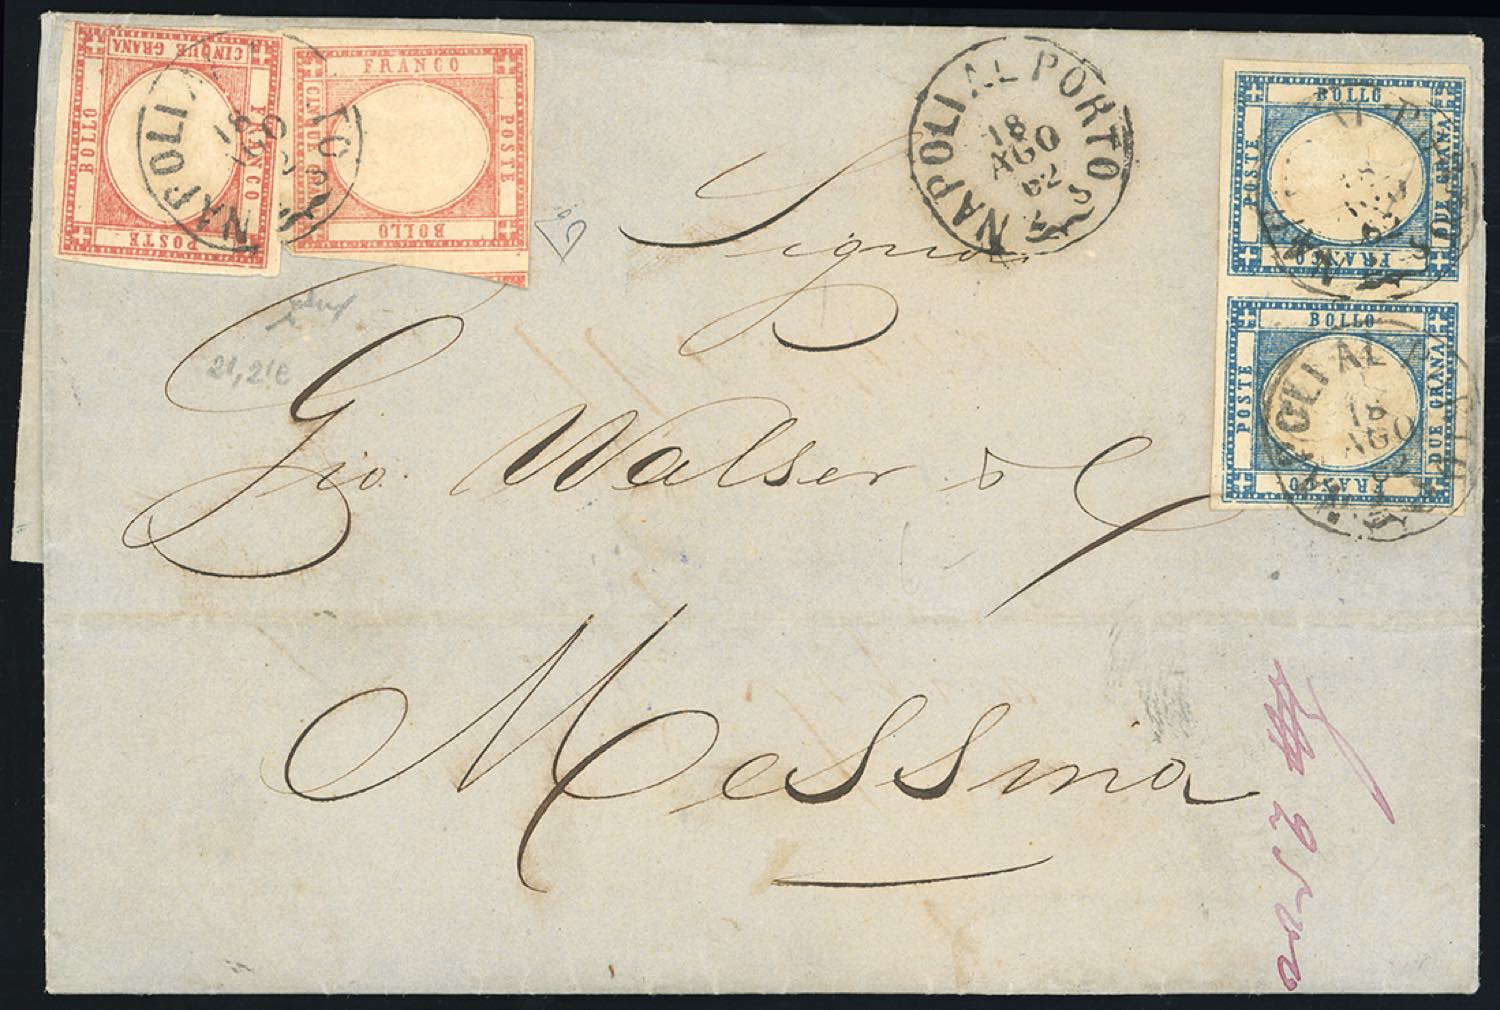 CINQUE GRANA
BOLLO
FRANCO
POSTE
FRANCO
CINQUE GRANA
POSTE
BOLLO
NAPOLI AL PORTO
18
AGO
62
NAPOLI AL PORTO
18
AGO
62
S
BOLLO
POSTE
DUE GRANA
FRANCO
18
BOLLO
POSTE
DUE GRANA
FRANCO
NAPOLI AL
18
AGO
62
Signor
21, 21e
Gio. Walser & C
Messina